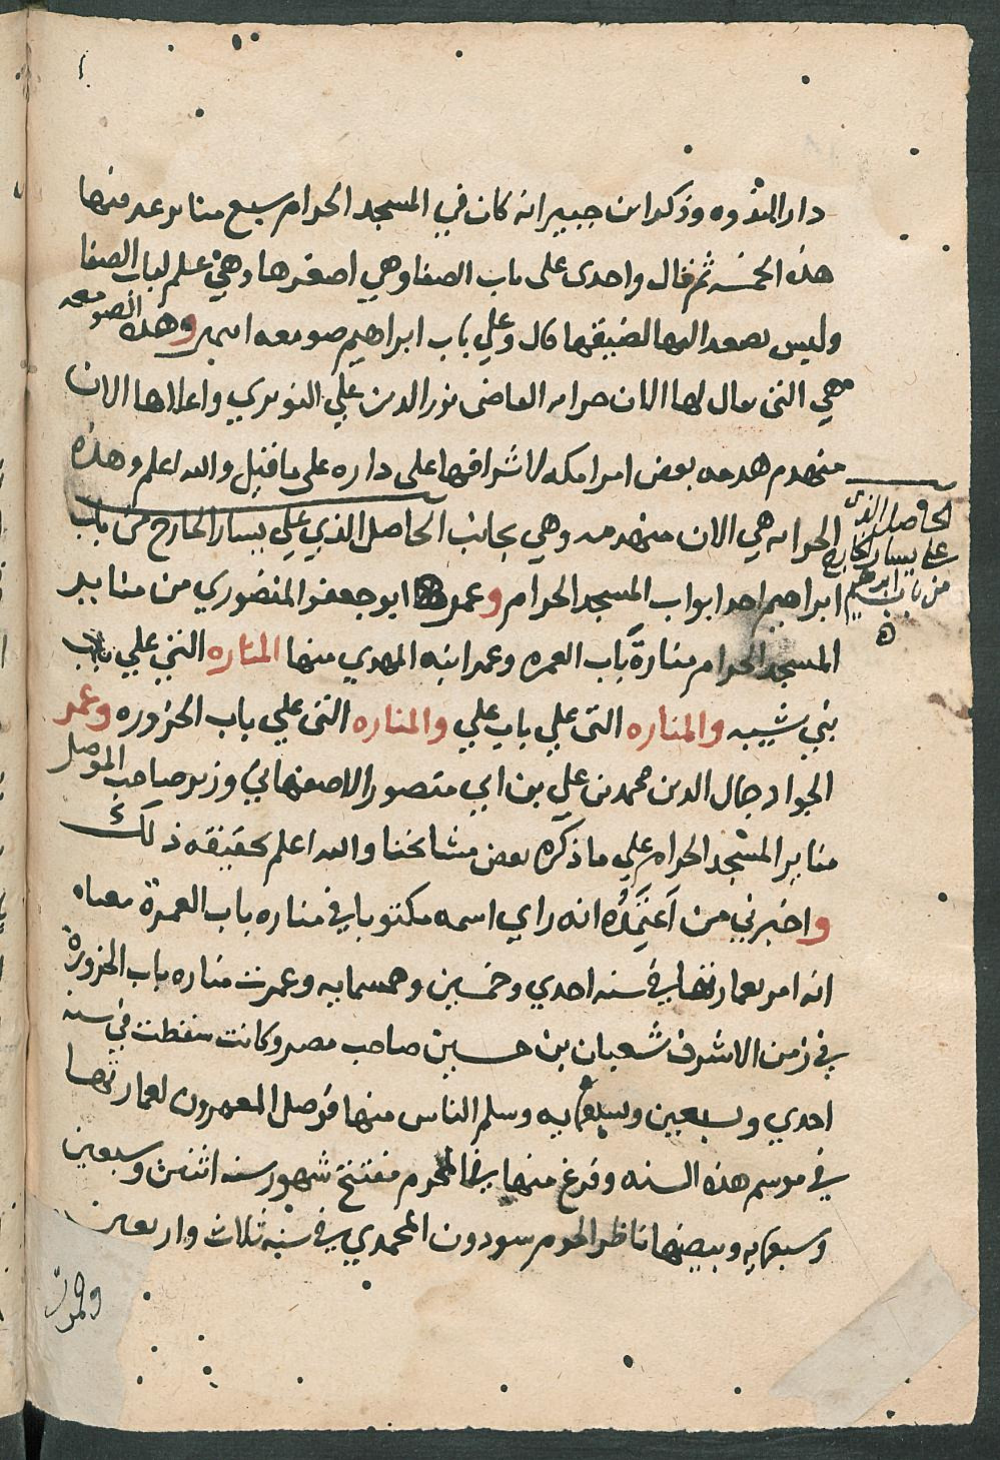 دار الندوه وذكر ابن جبير انه كان في المسجد الحرام سبع منابر عد منها
هذه الخمسه ثم قال واحدى على باب الصفا وهي اصغرها وهي علم لباب الصفا
وليس يصعد اليها لضيقها قال وعلي باب ابراهيم صومعه انتهى وهذه الصومعه
هي التى يقال لها الان خزانه القاضى نور الدين علي النويري واعلاها الان
منهدم هدمه بعض امرا مكه لاشرافها على داره على ما قيل والله اعلم وهذه
الخزانه هي الان منهدمه وهي بجانب الحاصل الذي علي يسار الخارج من باب
الحاصل الذى
على يسار الخارج
من باب ابراهيم
ابراهيم احد ابواب المسجد الحرام وعمر ابو جعفر المنصوري من منابر
المسجد الحرام منارة باب العمره وعمر ابنه المهدي منها المناره التي علي باب
بني شيبه والمناره التى علي باب علي والمناره التى علي باب الحزوره وعمر
الجواد جمال الدين محمد بن علي بن ابي منصور الاصفهاني وزير صاحب الموصل
منابر المسجد الحرام علي ما ذكره بعض مشائخنا والله اعلم بحقيقه ذلك
واخبرني من اعتمده انه راي اسمه مكتوبا في مناره باب العمرة معناه
انه امر بعمارتها في سنه احدي وخمسين وخمسمايه وعمرت مناره باب الحزورة
في زمن الاشرف شعبان بن حسين صاحب مصر وكانت سقطت في سنه
احدي وسبعين وسبعمايه وسلم الناس منها فوصل المعمرون لعمارتها
في موسم هذه السنه وفرغ منها في المحرم مفتتح شهور سنه اثنين وسبعين
وسبعمايه وبيضها ناظر الحرم سودون المحمدي في سنه ثلاث واربعين